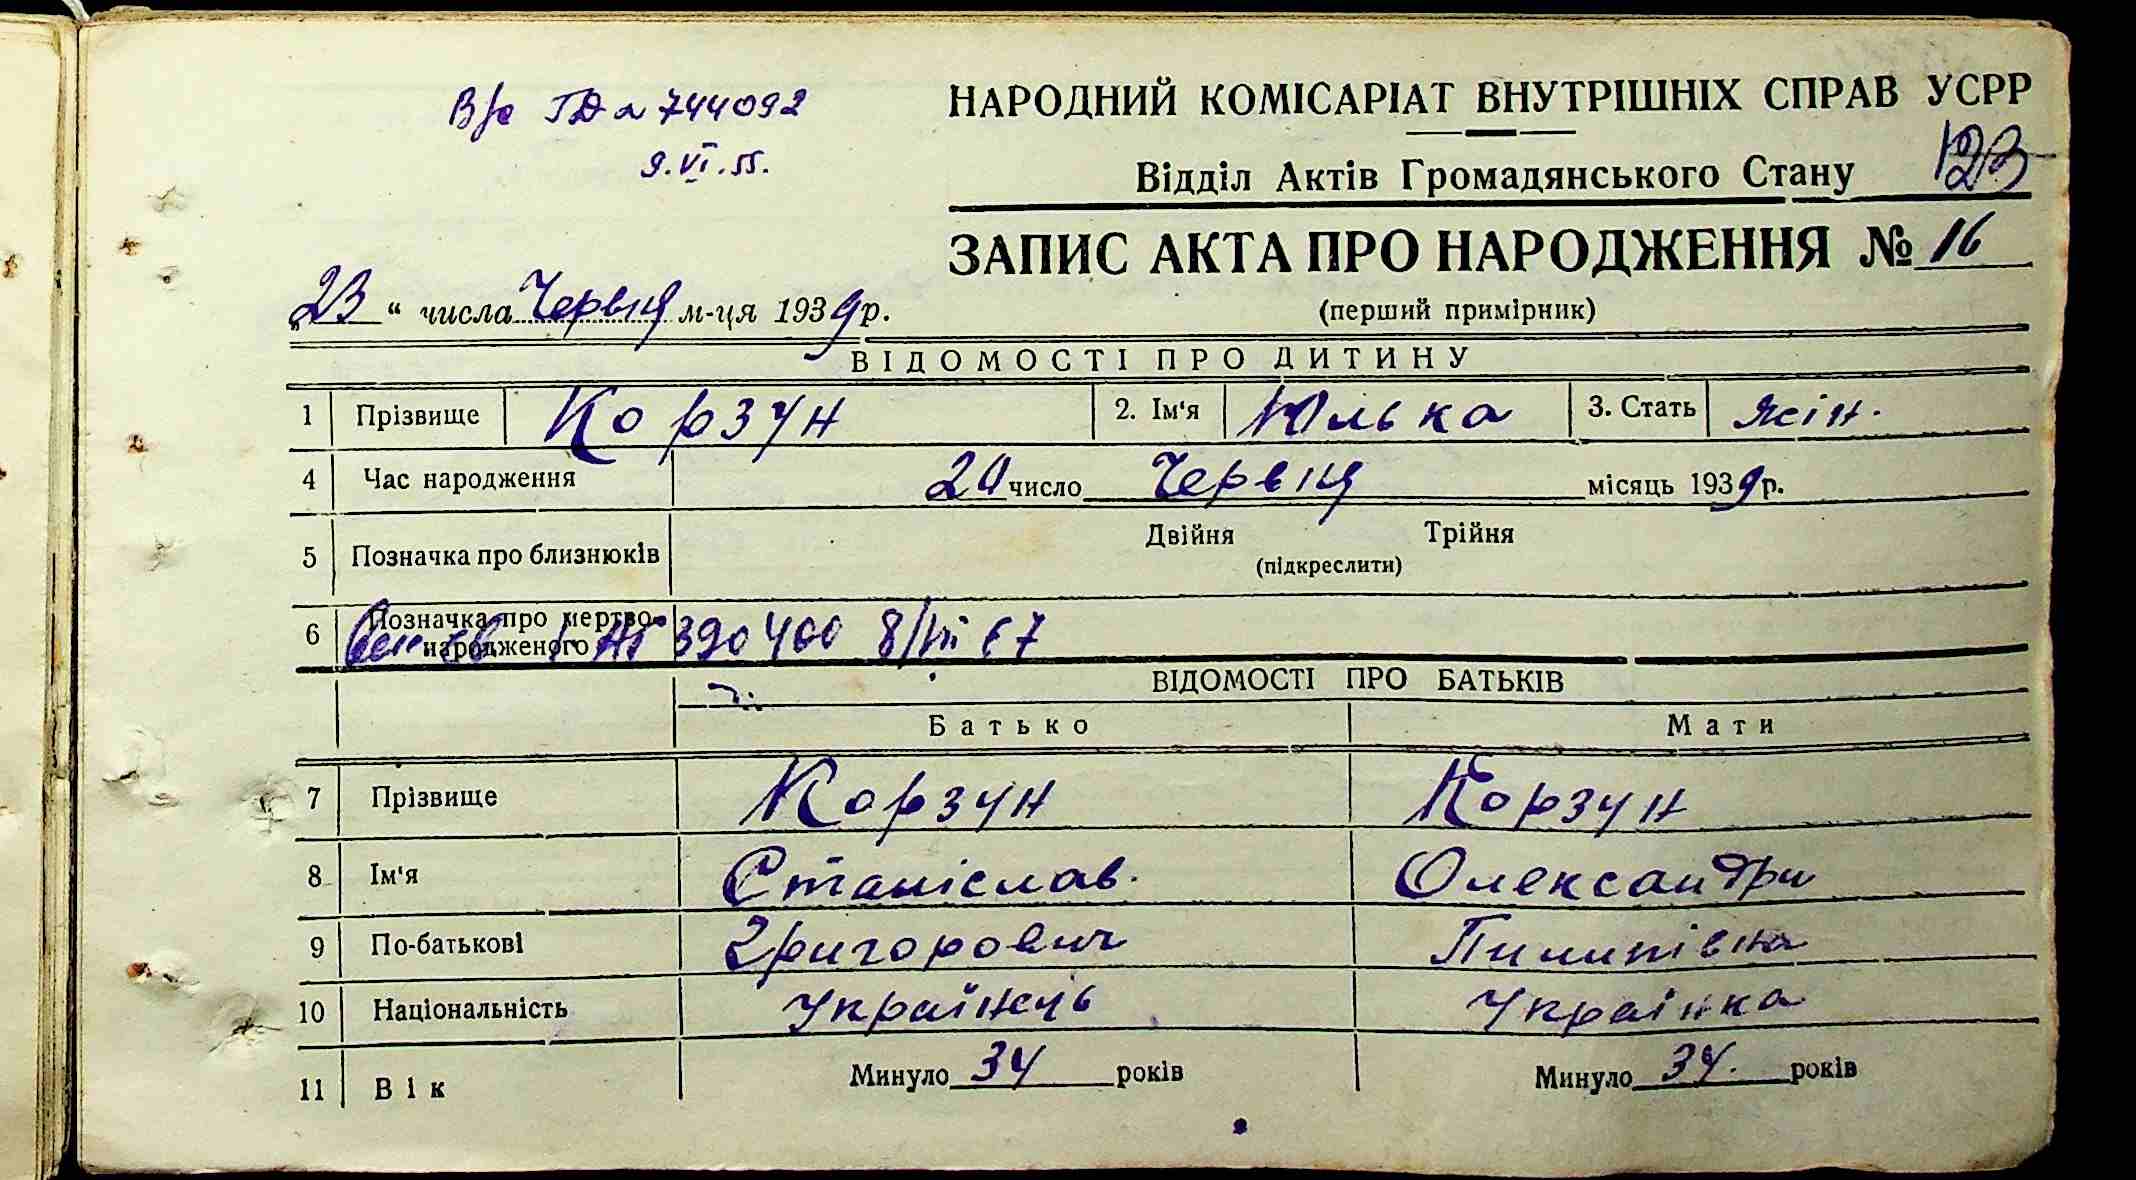 В/с ГД № 744092
9.VI.55.
НАРОДНИЙ КОМІСАРІАТ ВНУТРІШНІХ СПРАВ УСРР
Відділ Актів Громадянського Стану 123
ЗАПИС АКТА ПРО НАРОДЖЕННЯ № 16
(перший примірник)
„23“ числа Червця м-ця 1939 р.
ВІДОМОСТІ ПРО ДИТИНУ
1 Прізвище Корзун 2. Ім'я Юлька 3. Стать жін.
4 Час народження 20 число Червця місяць 1939 р.
5 Позначка про близнюків Двійня Трійня
(підкреслити)
6 Позначка про мертвонародженого
390400 8/VII 67
ВІДОМОСТІ ПРО БАТЬКІВ
Батько Мати
7 Прізвище Корзун Корзун
8 Ім'я Станіслав. Олександри
9 По-батькові Григорович Пилипівна
10 Національність Українець Українка
11 Вік Минуло 34 років Минуло 34. років